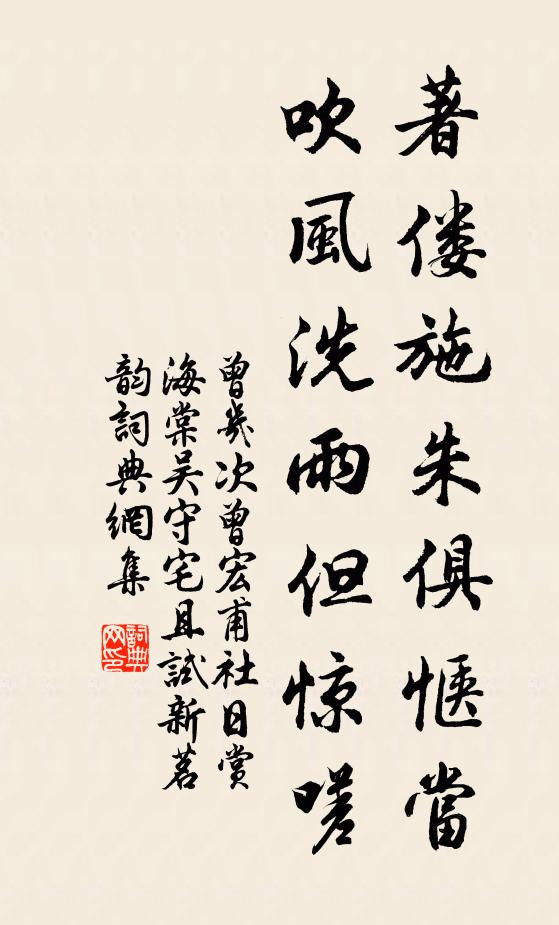 著偻施朱俱惬當
吹風洗雨但惊嗟
曾幾次曾宏甫社日賞
海棠吴守宅且試新茗
韵詞典網集
詞典
网印